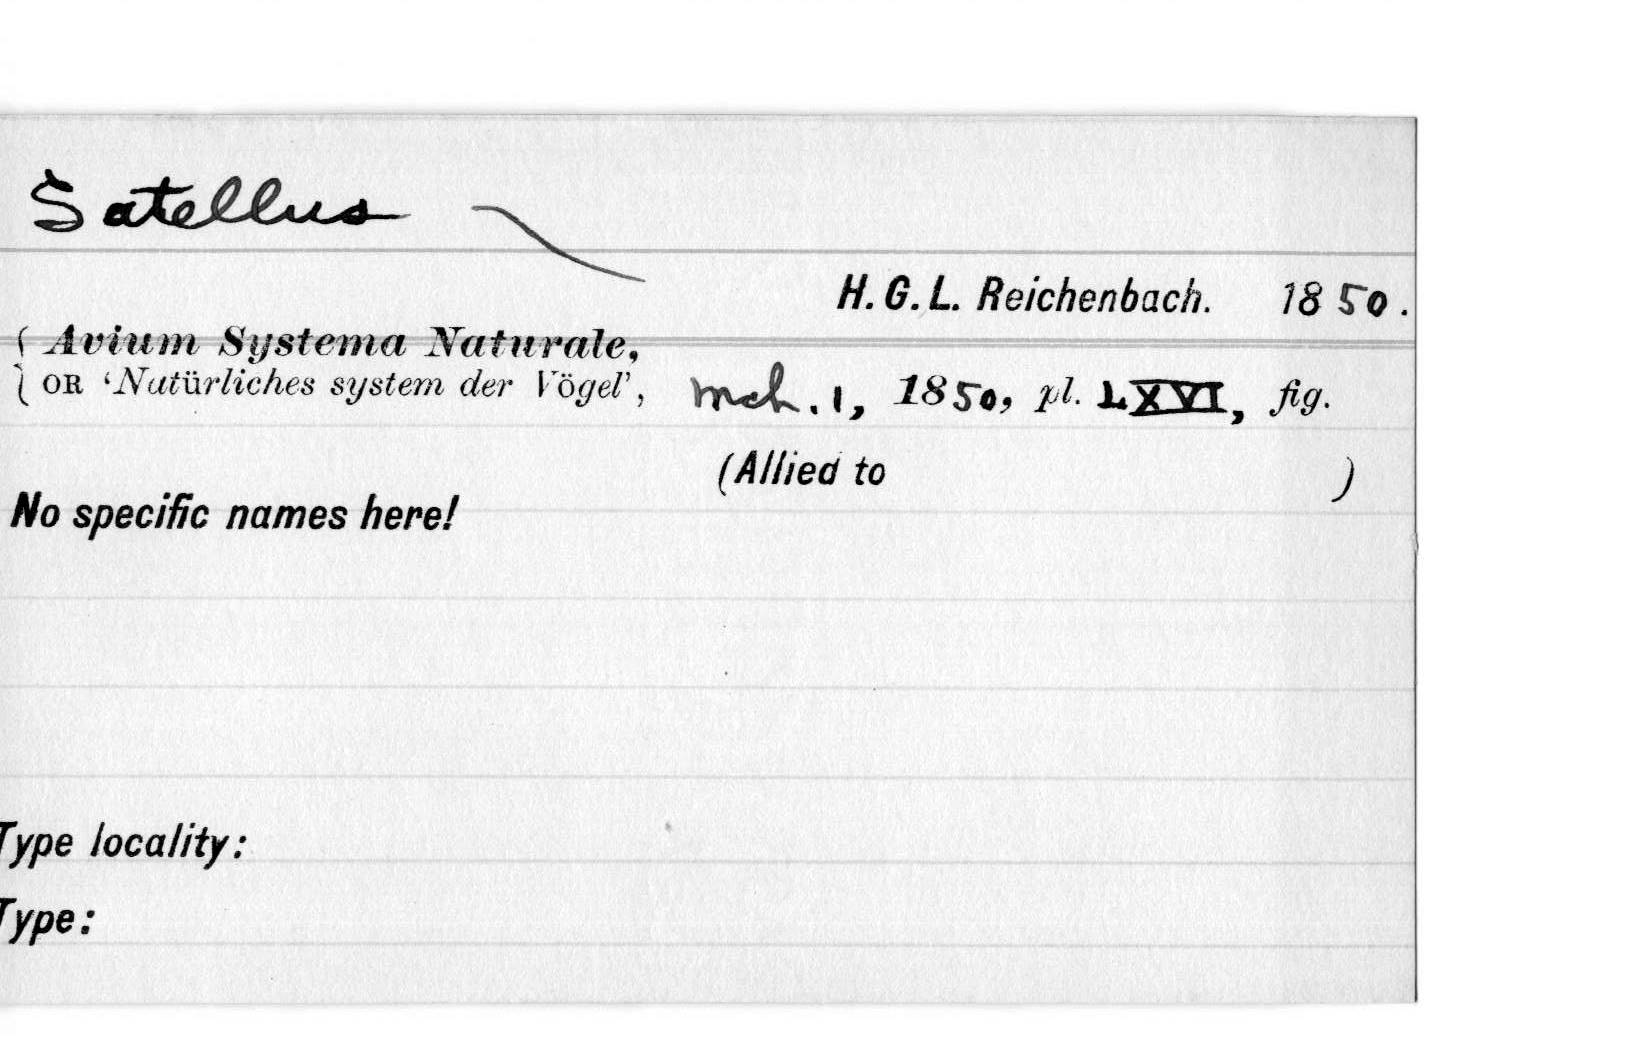 Satellus
H. G. L. Reichenbach. 1850.
{ Avium Systema Naturale,
OR 'Natürliches system der Vögel', Mch. 1, 1850, pl. LXVI, fig.
(Allied to )
No specific names here!
Type locality:
Type: